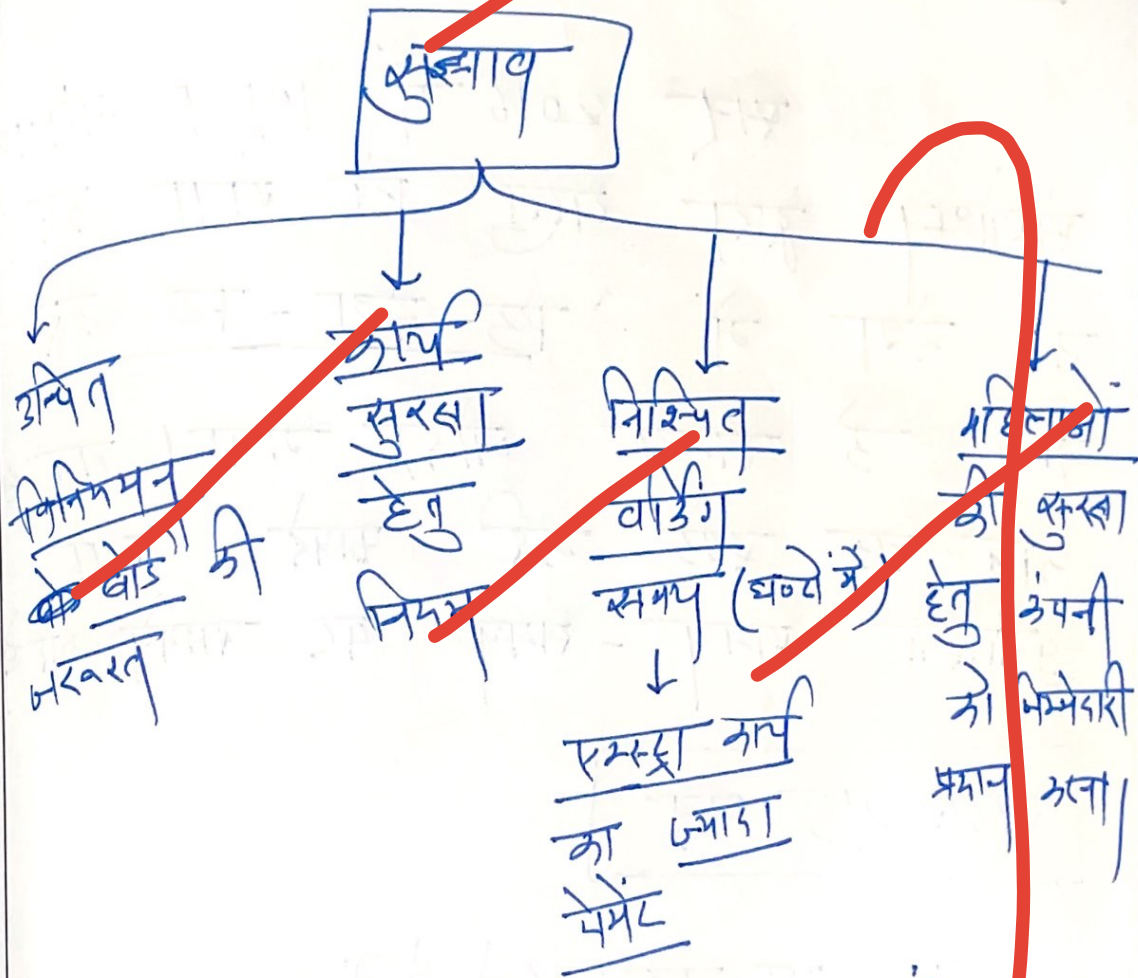 सुझाव
उचित
विनियमन
बोर्ड" की
जरूरत
कार्य
सुरक्षा
हेतु
नियम
निश्चित
वर्किंग
समय (घण्टो में)
एक्स्ट्रा कार्य
का ज्यादा
पेमेंट
महिलाओं
की सुरक्षा
हेतु कंपनी
को जिम्मेदारी
प्रदान करना।